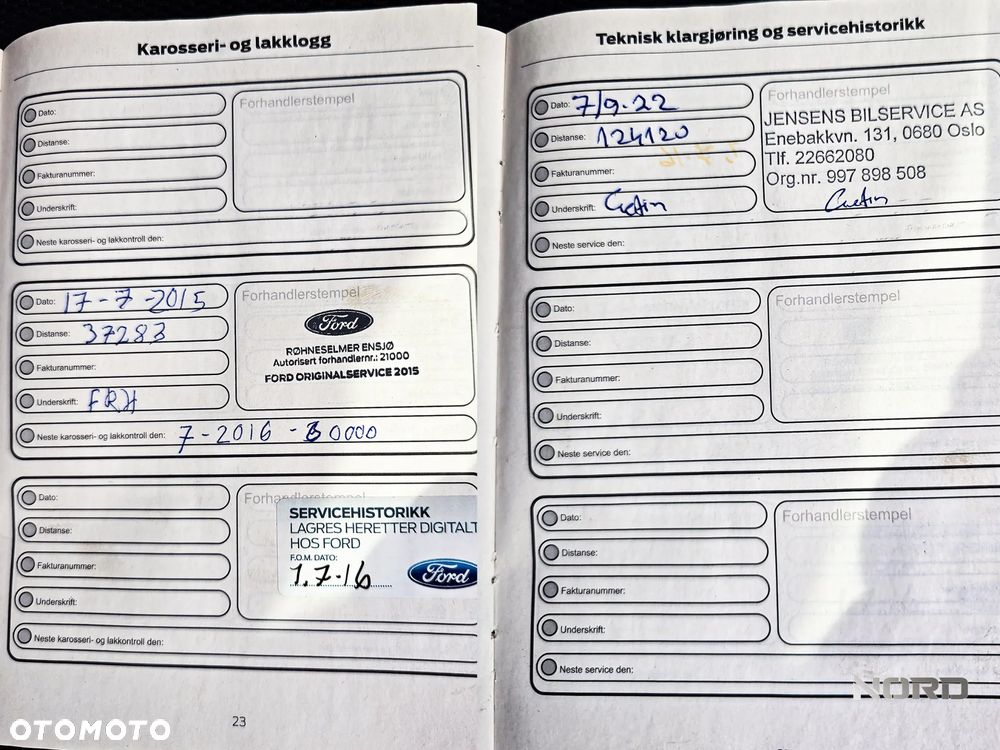 Karosseri- og lakklogg
Dato:
Forhandlerstempel
Distanse:
Fakturanummer:
Underskrift:
Neste karosseri- og lakkontroll den:
Dato: 17-7-2015
Forhandlerstempel
Distanse: 37283
Ford
RØHNESELMER ENSJØ
Autorisert forhandlernr.: 21000
FORD ORIGINALSERVICE 2015
Fakturanummer:
Underskrift: FRH
Neste karosseri- og lakkontroll den: 7-2016 - 60000
Dato:
Forhandlerstempel
Distanse:
SERVICEHISTORIKK
LAGRES HERETTER DIGITALT
HOS FORD
F.O.M. DATO:
1.7-16
Ford
Fakturanummer:
Underskrift:
Neste karosseri- og lakkontroll den:
23
Teknisk klargjøring og servicehistorikk
Dato: 7/9-22
Forhandlerstempel
Distanse: 124120
JENSENS BILSERVICE AS
Enebakkvn. 131, 0680 Oslo
Tlf. 22662080
Org.nr. 997 898 508
Fakturanummer:
Underskrift:
Neste service den:
Dato:
Forhandlerstempel
Distanse:
Fakturanummer:
Underskrift:
Neste service den:
Dato:
Forhandlerstempel
Distanse:
Fakturanummer:
Underskrift:
Neste service den:
NORD
OTOMOTO